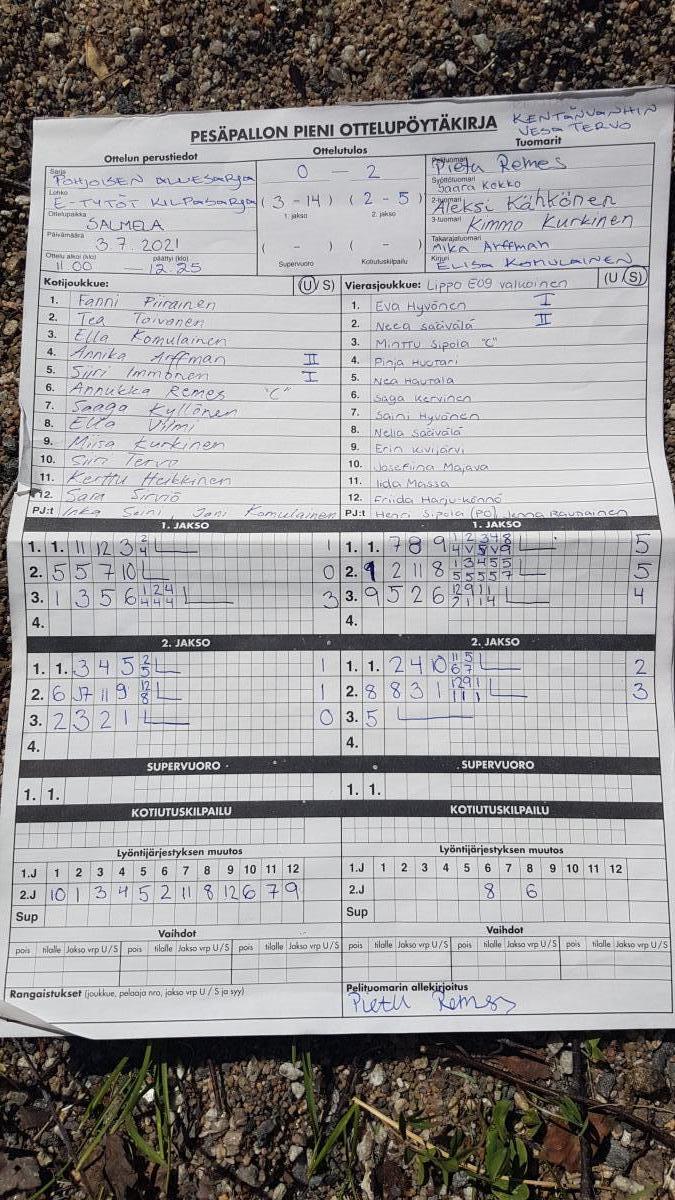 PESÄPALLON PIENI OTTELUPÖYTÄKIRJA
KENTÄNVANHIN
VESA TERVO
Ottelun perustiedot
Ottelutulos
Tuomarit
Sarja
POHJOISEN ALUESARJA
0 — 2
Pelituomari
Pietu Remes
Lohko
E-TYTÖT KILPASARJA
(3 - 14) (2 - 5)
1. jakso
2. jakso
Syöttötuomari
Saara Kokko
2-tuomari
Aleksi Kähkönen
Ottelupaikka
SALMELA
3-tuomari
Kimmo Kurkinen
Päivämäärä
3.7.2021
( - ) ( - )
Supervuoro
Kotiutuskilpailu
Takarajatuomari
Mika Arffman
Ottelu alkoi (klo)
päättyi (klo)
11.00 — 12.25
Kirjuri
ELISA KOMULAINEN
Kotijoukkue:
(U / S)
1. Fanni Piirainen
2. Tea Toivanen
3. Ella Komulainen
4. Annika Arffman II
5. Siiri Immonen I
6. Annukka Remes "C"
7. Saaga Kyllönen
8. Ella Vilmi
9. Miisa Kurkinen
10. Siiri Tervo
11. Kerttu Heikkinen
12. Sara Sirviö
PJ:t Inka Seini, Jani Komulainen
Vierasjoukkue: Lippo E09 valkoinen (U / S)
1. Eva Hyvönen I
2. Neea Säävälä II
3. Minttu Sipola "C"
4. Pinja Huotari
5. Nea Hautala
6. Saga Kervinen
7. Saini Hyvönen
8. Nelia Säävälä
9. Erin Kivijärvi
10. Josefiina Majava
11. Iida Massa
12. Friida Harju-Könnö
PJ:t Henri Sipola (PO), Jenna Rautiainen
1. JAKSO
1. 1. 11 12 3 2/4 1
2. 5 5 7 10 0
3. 1 3 5 6 1/4 2/4 4/4 3
4.
1. JAKSO
1. 1. 7 8 9 5
2. 9 2 11 8 1/5 3/5 4/5 5/5 5/7 5
3. 9 5 2 6 4
4.
2. JAKSO
1. 1. 3 4 5 2/5 1
2. 6 7 11 9 12/8 1
3. 2 3 2 1 0
4.
2. JAKSO
1. 1. 2 4 10 11/6 5/7 2
2. 8 8 3 1 12/1 9/1 1/1 3
3. 5
4.
SUPERVUORO
1. 1.
SUPERVUORO
1. 1.
KOTIUTUSKILPAILU
KOTIUTUSKILPAILU
Lyöntijärjestyksen muutos
1.J 1 2 3 4 5 6 7 8 9 10 11 12
2.J 10 1 3 4 5 2 11 8 12 6 7 9
Sup
Lyöntijärjestyksen muutos
1.J 1 2 3 4 5 6 7 8 9 10 11 12
2.J 8 6
Sup
Vaihdot
pois tilalle Jakso vrp U / S pois tilalle Jakso vrp U / S pois tilalle Jakso vrp U / S
Vaihdot
pois tilalle Jakso vrp U / S pois tilalle Jakso vrp U / S pois tilalle Jakso vrp U / S
Rangaistukset (joukkue, pelaaja nro, jakso vrp U / S ja syy)
Pelituomarin allekirjoitus
Pietu Remes